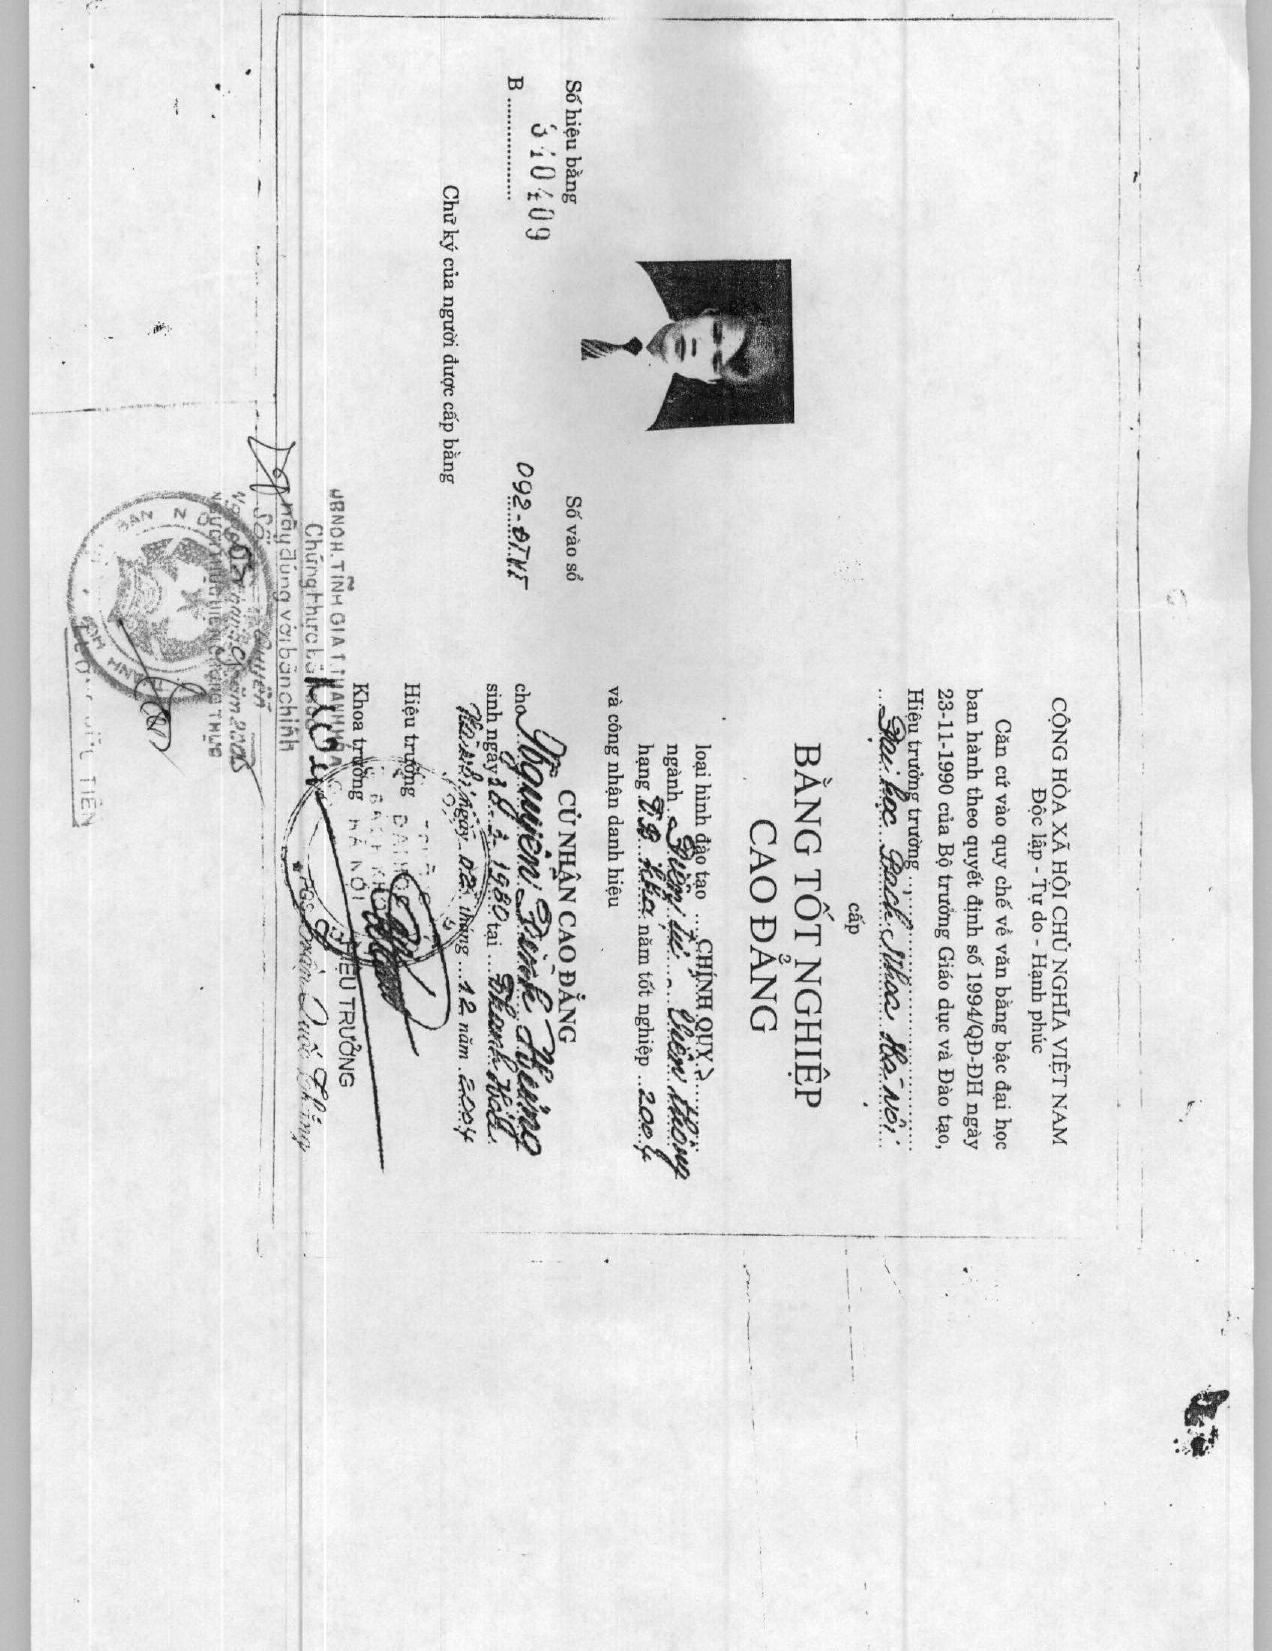 CỘNG HÒA XÃ HỘI CHỦ NGHĨA VIỆT NAM
Độc lập - Tự do - Hạnh phúc
Căn cứ vào quy chế về văn bằng bậc đại học
ban hành theo quyết định số 1994/QĐ-ĐH ngày
23-11-1990 của Bộ trưởng Giáo dục và Đào tạo,
Hiệu trưởng trường
Đại học Bách Khoa Hà Nội
cấp
BẰNG TỐT NGHIỆP
CAO ĐẲNG
loại hình đào tạo CHÍNH QUY
ngành Điện tử - Viễn thông
hạng T.B Khá năm tốt nghiệp 2004
và công nhận danh hiệu
CỬ NHÂN CAO ĐẲNG
cho Nguyễn Đình
sinh ngày 1980 tại Thanh Hoá
Hà Nội, ngày 02 tháng 12 năm 2004
Hiệu trưởng
Khoa trưởng
HIỆU TRƯỞNG
Số hiệu bằng
B 340409
Số vào sổ
092-ĐTVT
Chữ ký của người được cấp bằng
UBND H. TĨNH GIA T. THANH HÓA
Chứng thực bản sao
này đúng với bản chính
Số Quyển